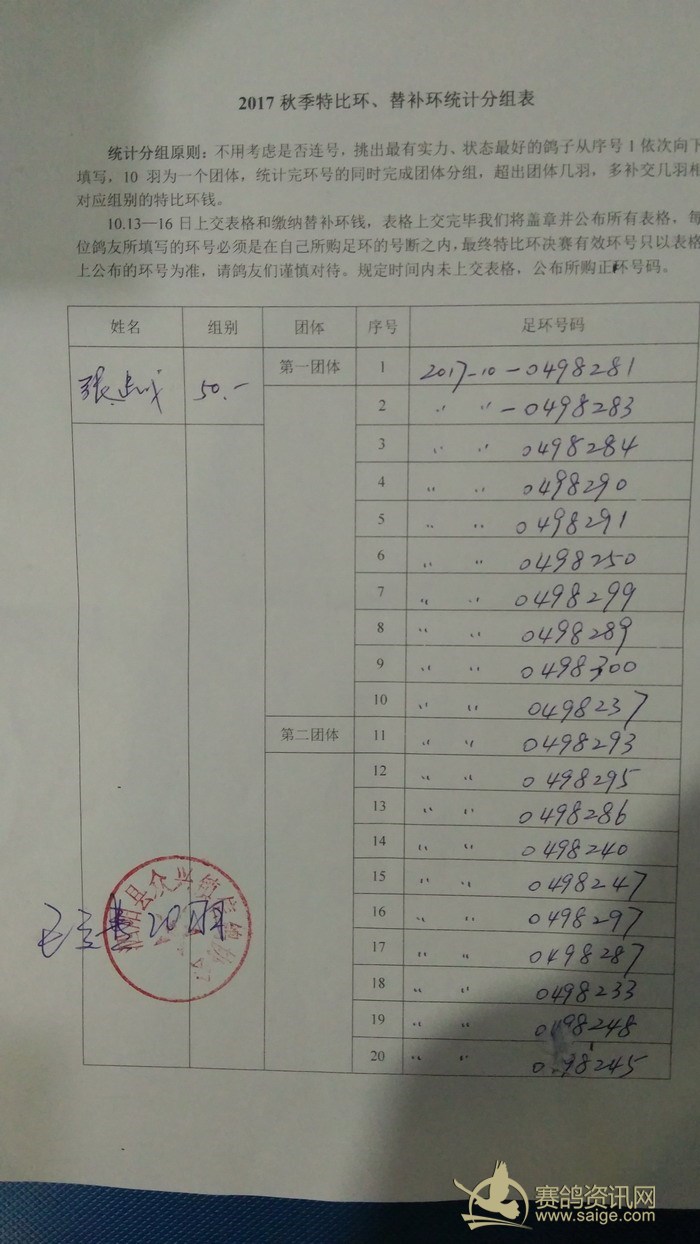 2017 秋季特比环、替补环统计分组表
统计分组原则：不用考虑是否连号，挑出最有实力、状态最好的鸽子从序号 1 依次向下
填写，10 羽为一个团体，统计完环号的同时完成团体分组，超出团体几羽，多补交几羽相
对应组别的特比环钱。
10.13—16 日上交表格和缴纳替补环钱，表格上交完毕我们将盖章并公布所有表格，每
位鸽友所填写的环号必须是在自己所购足环的号断之内，最终特比环决赛有效环号只以表格
上公布的环号为准，请鸽友们谨慎对待。规定时间内未上交表格，公布所购正环号码。
姓名 组别 团体 序号 足环号码
张 50.- 第一团体 1 2017-10-0498281
2 〃 〃 -0498283
3 〃 〃 0498284
4 〃 〃 0498290
5 〃 〃 0498291
6 〃 〃 0498250
7 〃 〃 0498299
8 〃 〃 0498289
9 〃 〃 0498300
10 〃 〃 0498237
第二团体 11 〃 〃 0498293
12 〃 〃 0498295
13 〃 〃 0498286
14 〃 〃 0498240
15 〃 〃 0498247
16 〃 〃 0498297
17 〃 〃 0498287
18 〃 〃 0498233
19 〃 〃 0498248
20 〃 〃 0498245
县众兴镇信鸽协会
20羽
赛鸽资讯网
www.saige.com